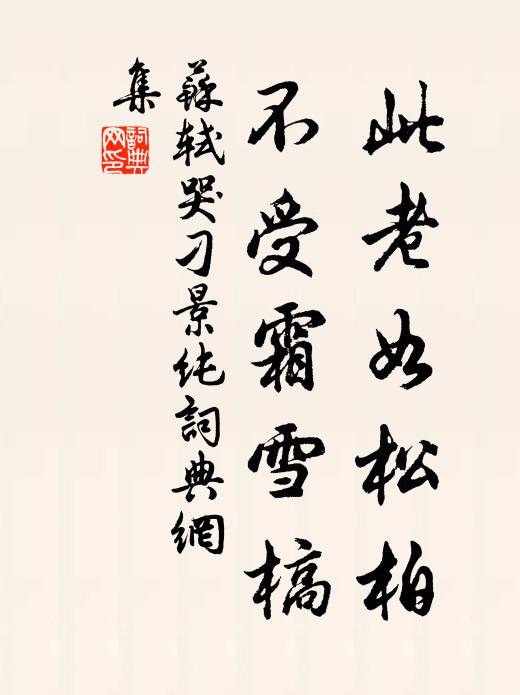 此老如松柏
不受霜雪槁
蘇軾哭刁景純詞典網
集
詞典
网印